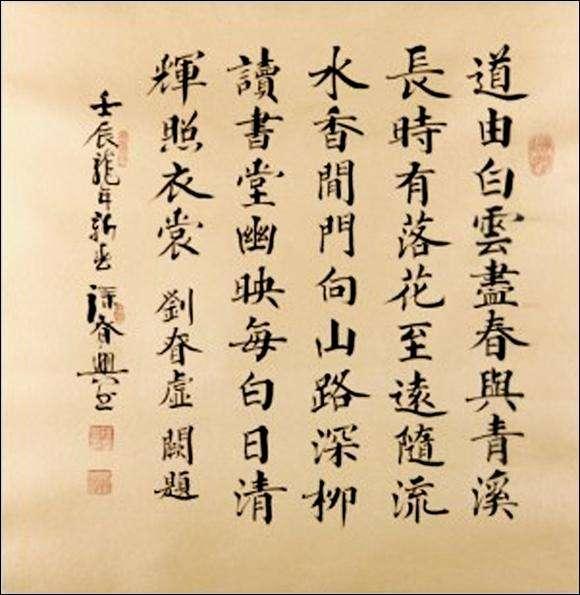 道由白雲盡春與青溪
長時有落花至遠隨流
水香閒門向山路深柳
讀書堂幽映每白日清
輝照衣裳 劉眘虛 闕題
壬辰龍年新春